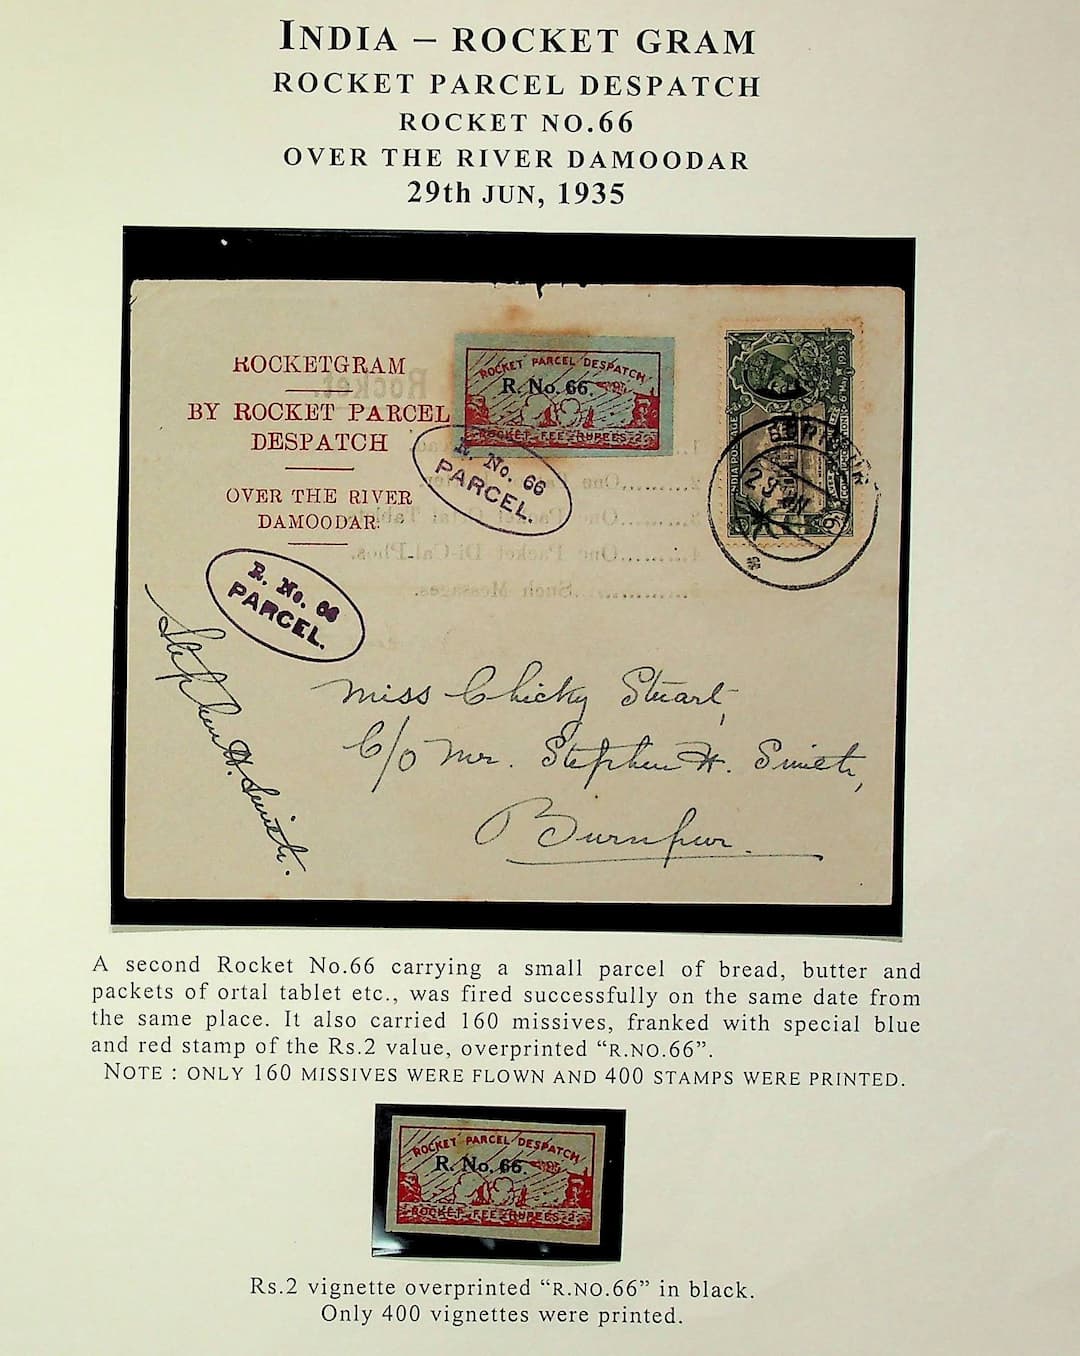 INDIA – ROCKET GRAM
ROCKET PARCEL DESPATCH
ROCKET NO.66
OVER THE RIVER DAMOODAR
29th JUN, 1935
ROCKETGRAM
BY ROCKET PARCEL
DESPATCH
OVER THE RIVER
DAMOODAR.
ROCKET PARCEL DESPATCH
R. No. 66
ROCKET FEE RUPEES 2
INDIA POSTAGE
6 MAY 1935
BURNPUR
29 JUN
R. No. 66
PARCEL.
R. No. 66
PARCEL.
Rocket.
One Packet Di-Cal-Phos.
Such Messages.
Stephen H. Smith.
Miss Chicky Stuart,
C/o Mr. Stephen H. Smith,
Burnpur.
A second Rocket No.66 carrying a small parcel of bread, butter and
packets of ortal tablet etc., was fired successfully on the same date from
the same place. It also carried 160 missives, franked with special blue
and red stamp of the Rs.2 value, overprinted “R.NO.66”.
NOTE : ONLY 160 MISSIVES WERE FLOWN AND 400 STAMPS WERE PRINTED.
ROCKET PARCEL DESPATCH
R. No. 66.
ROCKET FEE RUPEES 2
Rs.2 vignette overprinted “R.NO.66” in black.
Only 400 vignettes were printed.